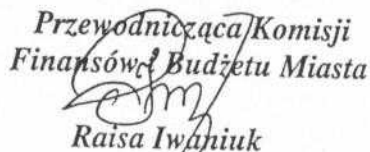 Przewodnicząca Komisji
Finansów i Budżetu Miasta
Raisa Iwaniuk